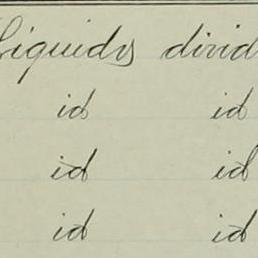 Liquids divid
id id
id id
id id